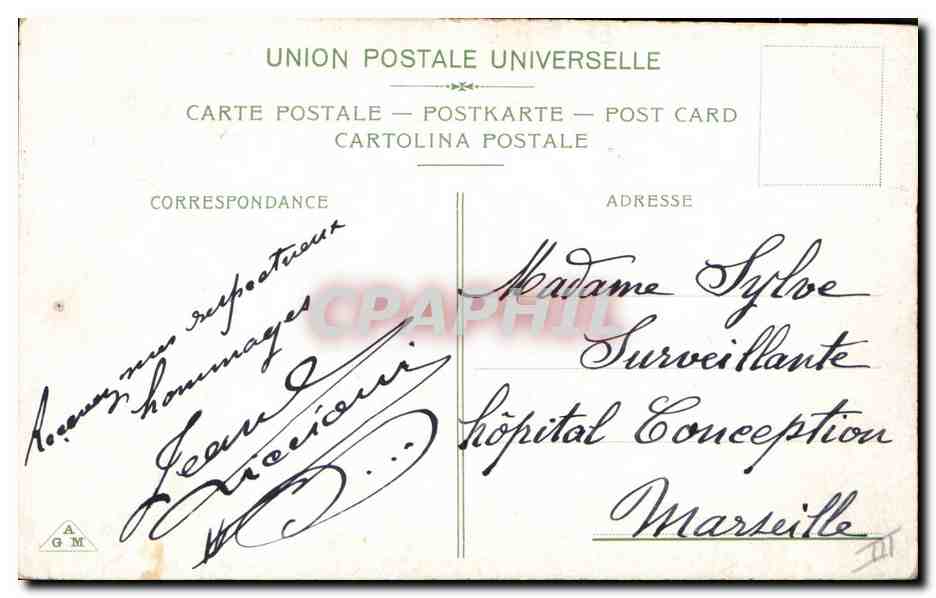 UNION POSTALE UNIVERSELLE
CARTE POSTALE — POSTKARTE — POST CARD
CARTOLINA POSTALE
CORRESPONDANCE
Recevez mes respectueux
hommages
Jean
ADRESSE
Madame Sylve
Surveillante
hôpital Conception
Marseille
III
A
G M
CPAPHIL